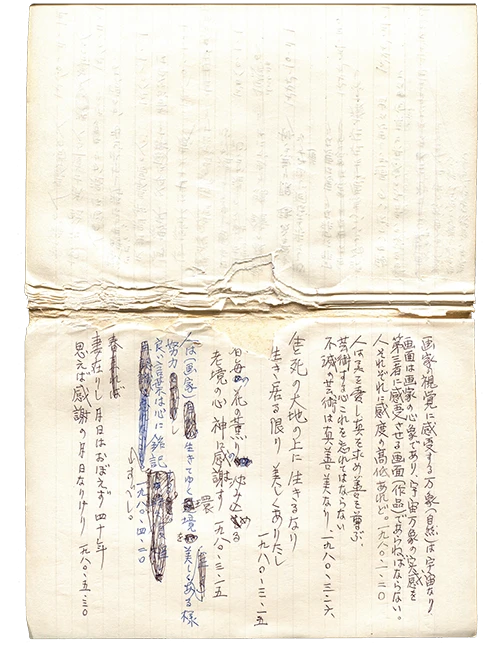 画家視覚に感受する万象(自然)は宇宙なり
画面は画家の心象であり、宇宙万象の実感を
第三者に感受させる画面(作品)であらねばならない。
人それぞれに感度の高低あれど。一九八〇・一・二〇
人は美を愛し真を求め善を尊ぶ、
芸術する心これを忘れてはならない
不滅の芸術は真善美なり、一九八〇・三・六
生死の大地の上に生きるなり
生き居る限り美しくありたし
一九八〇・三・一五
白毎の花の薫り
老境の心神に感謝す 一九八〇・三・一五
人は(画家)生きてゆく環境を美しくある様
努力し
良い言葉は心に銘記
すべし。 一九八〇・四・二〇
妻在りし月日はおぼえず四十年
思えば感謝の月日なりけり 一九八〇・五・三〇